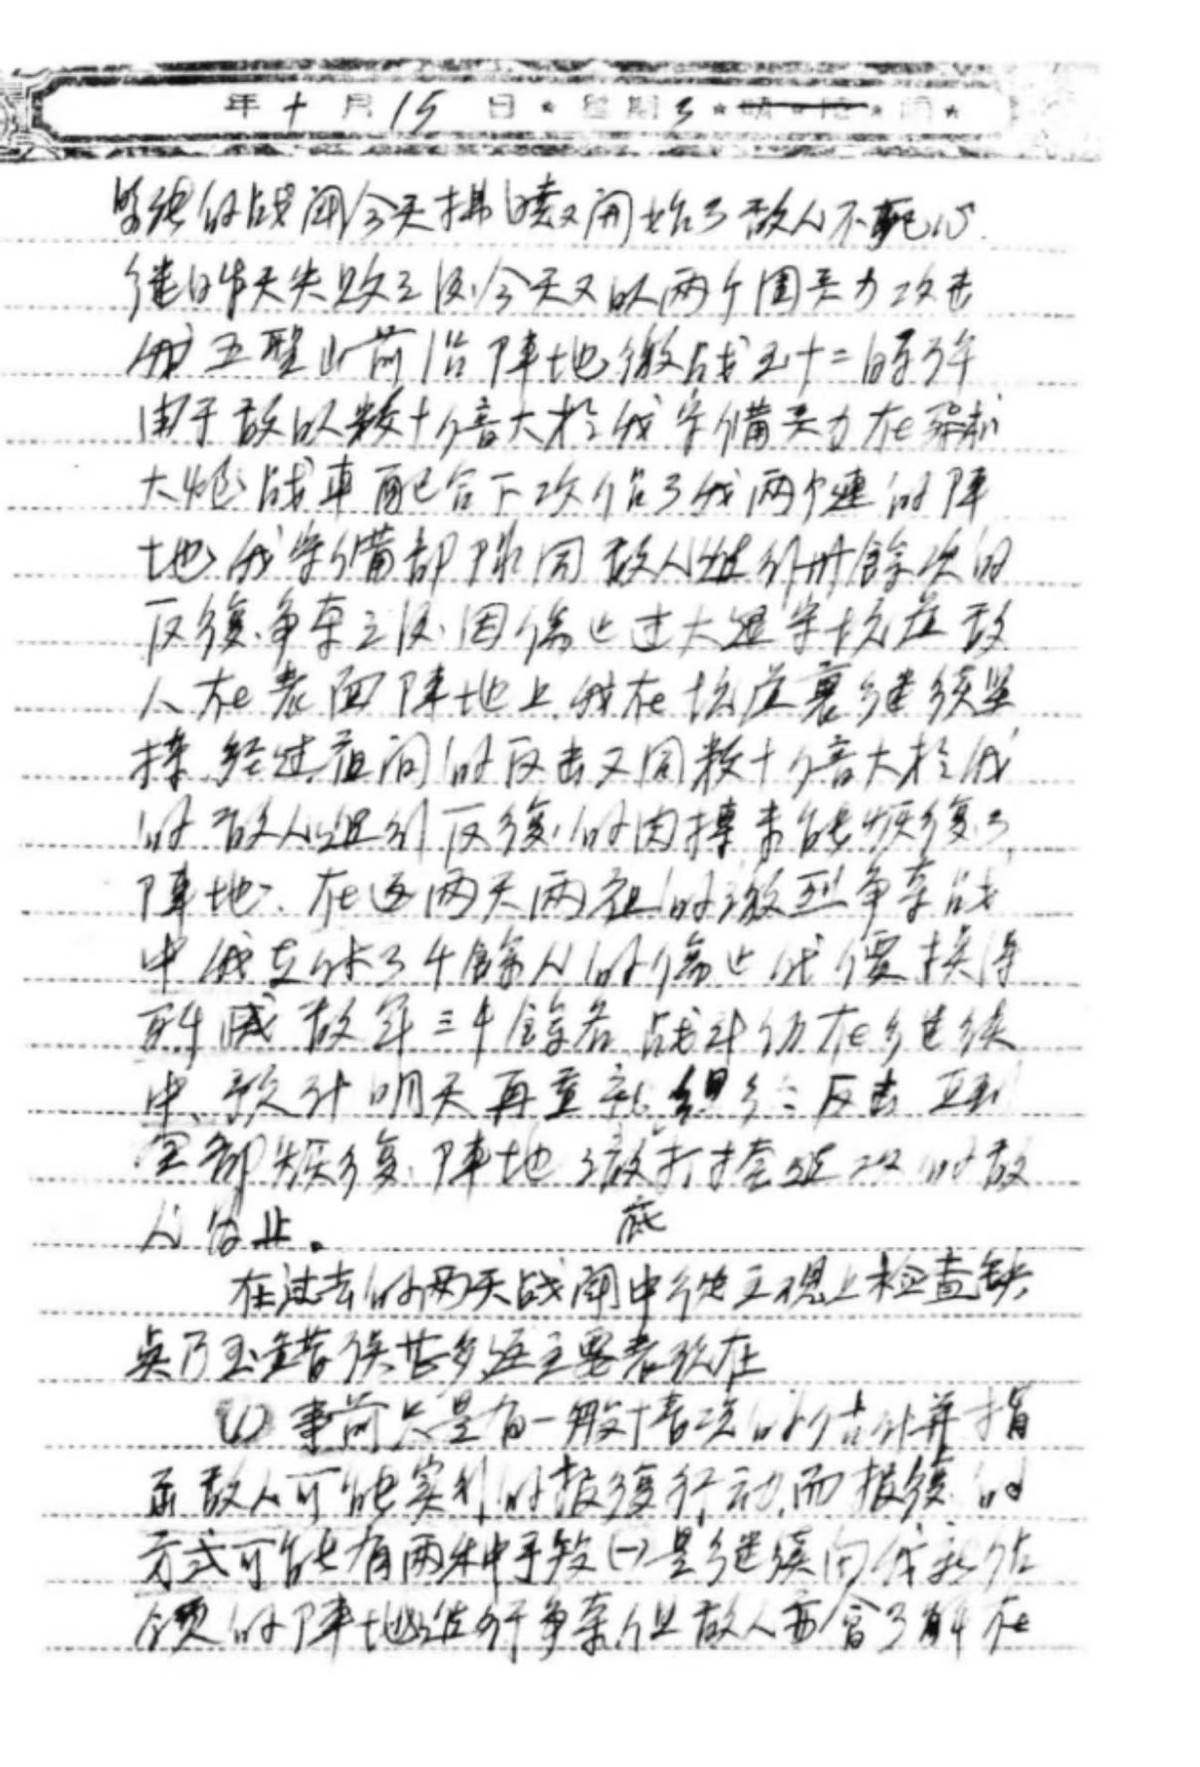 年十月15日★星期3★晴★陰★雨★
緊張的战闘今天拂曉又開始了敌人不死心
继昨天失败之后今天又以两个团兵力攻击
我五聖山前沿陣地激战至十二时许
由于敌以数十倍大於我守備兵力在飛机
大炮战車配合下攻佔了我两个連的陣
地我守備部队同敌人進行卅餘次的
反復争夺之后因傷亡过大退守坑道敌
人在表面陣地上我在坑道裏継续坚
持经过夜间的反击又同数十倍大於我
的敌人進行反復的肉搏未能恢復了
陣地、在这两天两夜的激烈争夺战
中我支付了千餘人的傷亡代價換得
殲滅敌军三千餘名战斗仍在继续
中、预计明天再重新组织反击直到
全部恢復陣地徹底打垮進攻的敌
人为止。
在过去的两天战闘中從主观上检查缺
点乃至錯误甚多这主要表现在
(1)事前只是有一般情况的估计并指
出敌人可能实行的报復行动而报復的
方式可能有两种手段(一)是继续向我新佔
领的陣地進行争夺但敌人亦會了解在